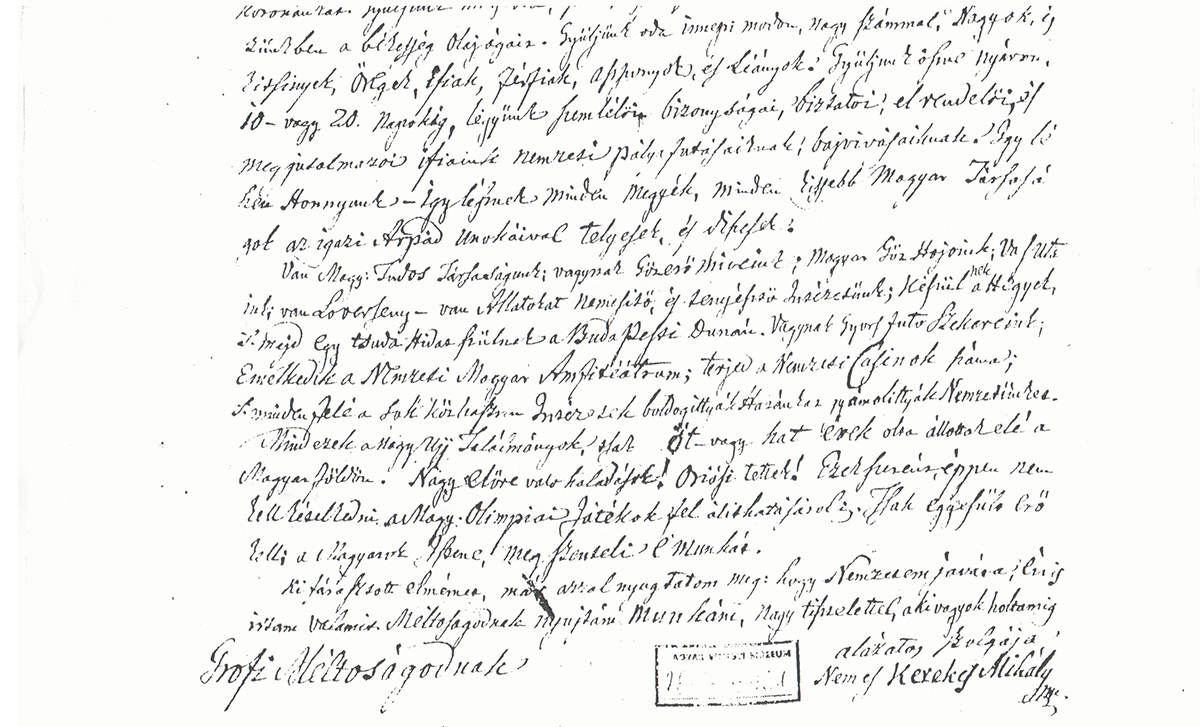 zünkben a békesség Olajágair. Gyüljünk oda innepi modon, nagy számmal, Nagyok, és
kitsinyek, Öregek, Ifiak, Férfiak, asszonyok, és Liányok! Gyüljunk öszve nyáron,
10 – vagy 20. Napokig, légyünk szemlélöi, bizonyságai, biztatoi, el rendelöi, és
meg jutalmazoi ifiaink nemzeti pálya futásaiknak, bajvivásaiknak! Igy lé
Honnyunk – így lésznek minden Megyék, minden kissebb Magyar Társasá
gok az igazi Árpád Unokáival telyesek, és ditsösek!
Van Magy: Tudos Társaságunk; vagynak Gözerö Miveink; Magyar Göz Hajoink; Vas uta
ink; van Lóverseny – van Állatokat Nemesitö, és tenyésztö Intézetünk; Készül a Hegyek nek
S majd egy tsuda Hidat szülnek a Buda Pesti Dunán. Vagynak Gyors futo Szekereink;
Emelkedik a Nemzeti Magyar Amfiteátrum; terjed a Nemzeti Casinok száma;
S minden felé a sok közhasznu Intézetek boldogittyák Hazánkat gyámolittyák Nemzetünket.
Mind ezek a nagy Ujj Találmányok, tsak öt – vagy hat évek olta állottak elé a
Magyar földön. Nagy elöre valo haladások! Oriási tettek! Ezek szerént éppen nem
kell kételkedni, a Magy. Olimpiai Játékok fel állithatásárol; Tsak eggyesült erö
kell; a Magyarok Istene, meg szenteli e' munkát.
Ki fárasztott elmémet, már azzal nyugtatom meg: hogy Nemzetem javára, én is
irtam valamit. Méltoságodnak nyujtám Munkám, nagy tisztelettel, aki vagyok holtamig
Grofi Méltoságodnak
alázatos szolgája
Nemes Kerekes Mihály
MUZEUM